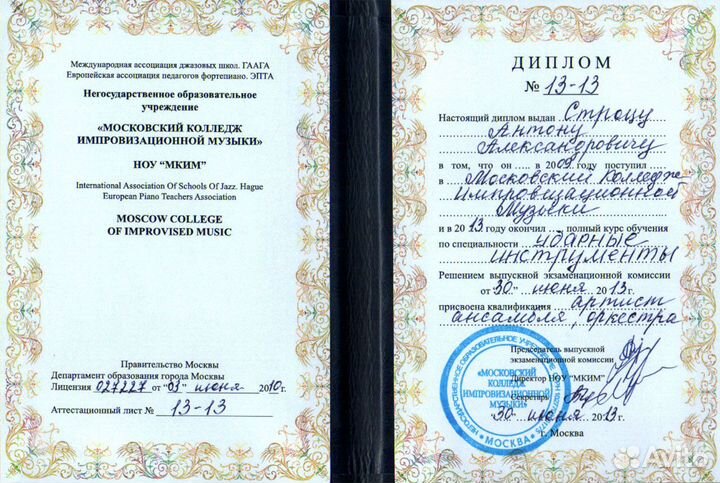 Международная ассоциация джазовых школ. ГААГА
Европейская ассоциация педагогов фортепиано. ЭПТА
Негосударственное образовательное
учреждение
«МОСКОВСКИЙ КОЛЛЕДЖ
ИМПРОВИЗАЦИОННОЙ МУЗЫКИ»
НОУ “МКИМ”
International Association Of Schools Of Jazz. Hague
European Piano Teachers Association
MOSCOW COLLEGE
OF IMPROVISED MUSIC
Правительство Москвы
Департамент образования города Москвы
Лицензия 027227 от “03” июня 2010г.
Аттестационный лист № 13-13
ДИПЛОМ
№ 13-13
Настоящий диплом выдан Строцу
Антону
Александровичу
в том, что он в 2009 году поступил
в Московский Колледж
Импровизационной
Музыки
и в 2013 году окончил полный курс обучения
по специальности ударные
инструменты
Решением выпускной экзаменационной комиссии
от “30” июня 2013г.
присвоена квалификация артист
ансамбля, оркестра
Председатель выпускной
экзаменационной комиссии
Директор НОУ “МКИМ”
Секретарь
“30” июня 2013г.
г. Москва
«МОСКОВСКИЙ
КОЛЛЕДЖ
ИМПРОВИЗАЦИОННОЙ
МУЗЫКИ»
* МОСКВА *
Avito